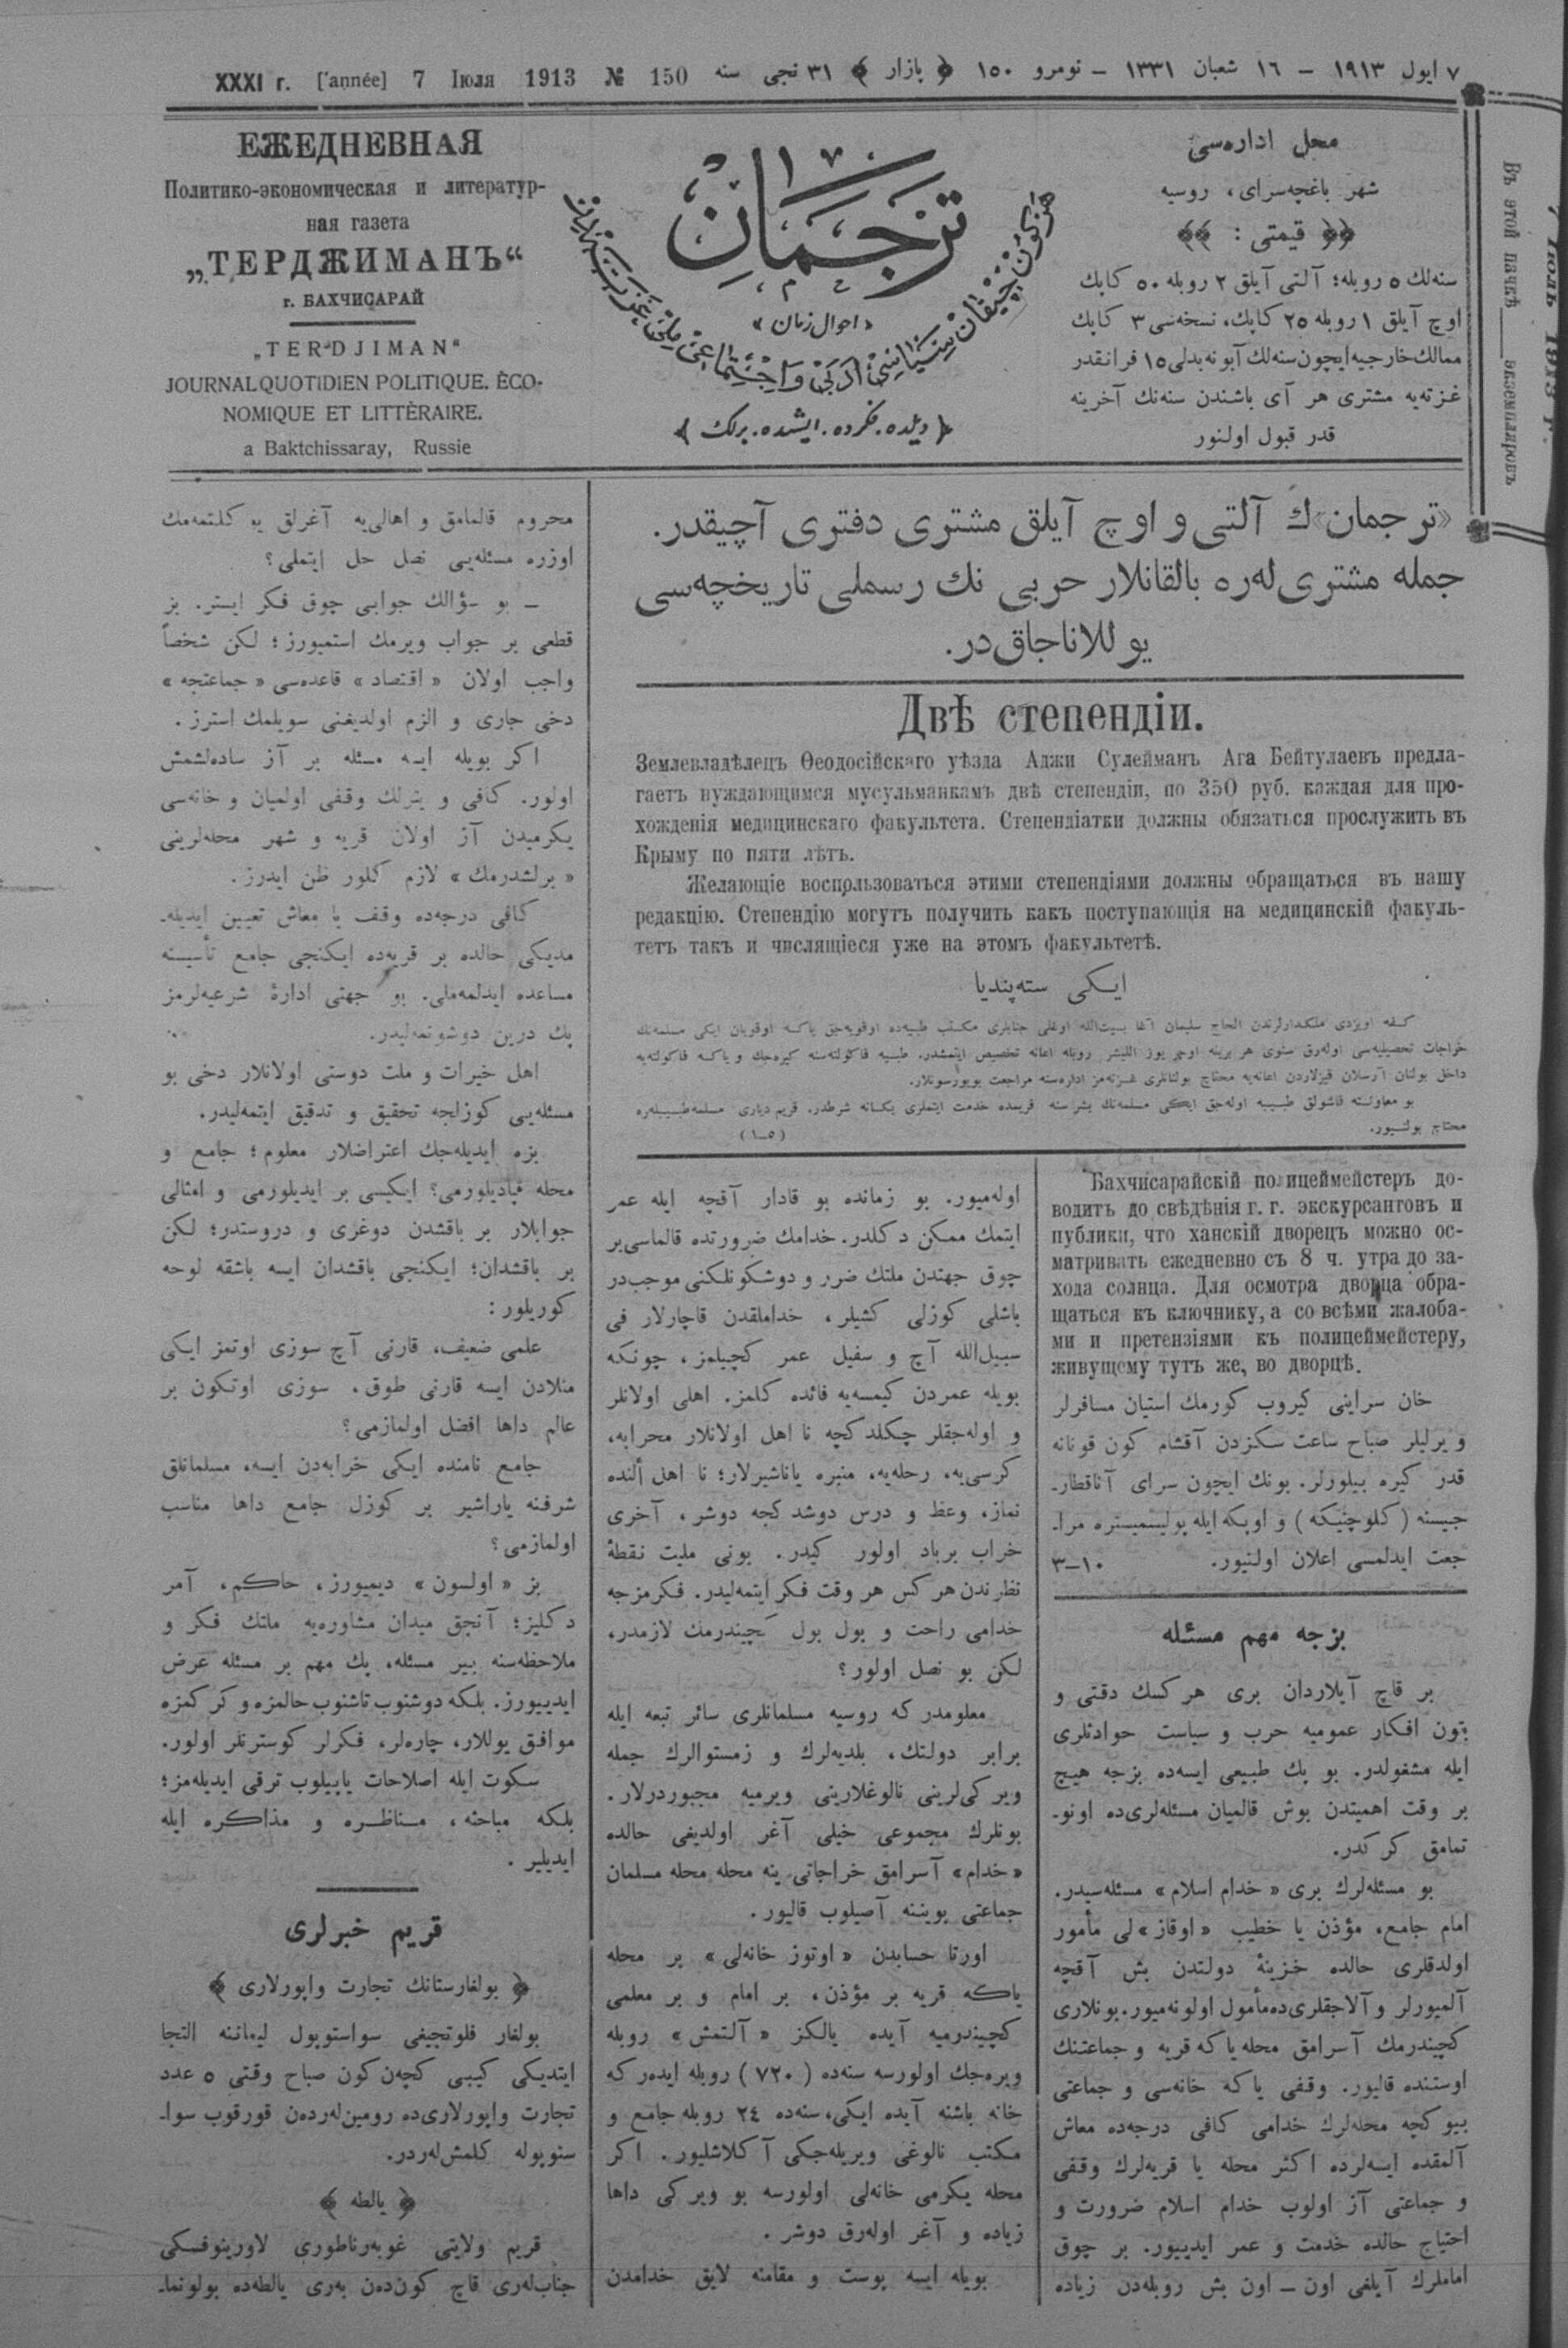 ٧ ایول ١٩١٣ – ١٦ شعبان ١٣٣١ – نومرو ١٥٠ ﴿ بازار ﴾ ٣١ نجی سنه
XXXI г. [année] 7 Іюля 1913 № 150
ЕЖЕДНЕВНАЯ
Политико-экономическая и литератур-
ная газета
„ТЕРДЖИМАНЪ“
г. БАХЧИСАРАЙ
„TERDJIMAN“
JOURNAL QUOTIDIEN POLITIQUE. ÈCO-
NOMIQUE ET LITTÈRAIRE.
a Baktchissaray, Russie
ترجمان
«احوال زمان»
هر كون چیقان سیاسی، ادبی و اجتماعی ملی غزته‌در
﴿ دیلده. فكرده. ایشده. برلك ﴾
محل اداره‌سی
شهر باغچه‌سرای، روسیه
﴿﴿ قیمتی : ﴾﴾
سنه‌لك ٥ روبله؛ آلتی آیلق ٢ روبله ٥٠ كاپك
اوچ آیلق ١ روبله ٢٥ كاپك، نسخه‌سی ٣ كاپك
ممالك خارجیه ایچون سنه‌لك آبونه بدلی ١٥ فرانقدر
غزته‌یه مشتری هر آی باشندن سنه‌نك آخرینه
قدر قبول اولنور
Въ этой пачкѣ ___ экземпляровъ
7 Іюль 1913 г.
«ترجمان»ك آلتی و اوچ آیلق مشتری دفتری آچیقدر.
جمله مشتری‌لەره بالقانلار حربی نك رسملی تاریخچه‌سی
یوللاناجاق‌در.
Двѣ степендіи.
Землевладѣлецъ Ѳеодосійскаго уѣзда Аджи Сулейманъ Ага Бейтулаевъ предла-
гаетъ нуждающимся мусульманкамъ двѣ степендіи, по 350 руб. каждая для про-
хожденія медицинскаго факультета. Степендіатки должны обязаться прослужить въ
Крыму по пяти лѣтъ.
Желающіе воспользоваться этими степендіями должны обращаться въ нашу
редакцію. Степендію могутъ получить какъ поступающія на медицинскій факуль-
тетъ такъ и числящіеся уже на этомъ факультетѣ.
ایكی سته‌پندیا
كفه اویزدی ملكدارلرندن الحاج سلیمان آغا بیت‌الله اوغلی جنابلری مكتب طبیه‌ده اوقویه‌جق یاكه اوقویان ایكی مسلمه‌نك
خراجات تحصیلیه‌سی اوله‌رق سنوی هر برینه اوچر یوز اللیشر روبله اعانه تخصیص ایتمشدر. طبیه فاكولته‌سنه كیره‌جك و یاكه فاكولته‌یه
داخل بولنان آرسلان قیزلاردن اعانه‌یه محتاج بولنانلری غزته‌مز اداره‌سنه مراجعت بویورسونلار.
بو معاونته قاشولق طبیبه اوله‌جق ایكی مسلمه‌نك بشر سنه قریمده خدمت ایتملری یكانه شرطدر. قریم دیاری مسلمه طبیبلره
محتاج بولنیور. (٥–١)
Бахчисарайскій полицеймейстеръ до-
водитъ до свѣдѣнія г. г. экскурсантовъ и
публики, что ханскій дворецъ можно ос-
матривать ежедневно съ 8 ч. утра до за-
хода солнца. Для осмотра дворца обра-
щаться къ ключнику, а со всѣми жалоба-
ми и претензіями къ полицеймейстеру,
живущему тутъ же, во дворцѣ.
خان سراینی كیروب كورمك استیان مسافرلر
و یرلیلر صباح ساعت سكزدن آقشام كون قونانه
قدر كیره بیلورلر. بونك ایچون سرای آناقطار-
جیسنه (كلوچنیكه) و اوپكه ایله پولیتسمیستره مرا-
جعت ایدلمسی اعلان اولنیور. ١٠–٣
بزجه مهم مسئله
بر قاچ آیلاردان بری هركسك دقتی و
بتون افكار عمومیه حرب و سیاست حوادثلری
ایله مشغولدر. بو پك طبیعی ایسه‌ده بزجه هیچ
بر وقت اهمیتدن بوش قالمیان مسئله‌لری‌ده اونو-
تمامق كركدر.
بو مسئله‌لرك بری « خدام اسلام » مسئله‌سیدر.
امام جامع، مؤذن یا خطیب « اوقاز » لی مأمور
اولدقلری حالده خزینهٔ دولتدن بش آقچه
آلمیورلر و آلاجقلری‌ده مأمول اولونه‌میور. بونلاری
كچیندرمك آسرامق محله یاكه قریه و جماعتنك
اوستنده قالیور. وقفی یاكه خانه‌سی و جماعتی
بیوكچه محله‌لرك خدامی كافی درجه‌ده معاش
آلمقده ایسه‌لرده اكثر محله یا قریه‌لرك وقفی
و جماعتی آز اولوب خدام اسلام ضرورت و
احتیاج حالده خدمت و عمر ایدییور. بر چوق
اماملرك آیلغی اون – اون بش روبله‌دن زیاده
اوله‌میور. بو زمانده بو قادار آقچه ایله عمر
ایتمك ممكن دكلدر. خدامك ضرورتده قالماسی بر
چوق جهتدن ملتك ضرر و دوشكونلكنی موجب‌در
باشلی كوزلی كشیلر، خداملقدن قاچارلار فی
سبیل‌الله آچ و سفیل عمر كچیلمز، چونكه
بویله عمردن كیمسه‌یه فائده كلمز. اهلی اولانلر
و اوله‌جقلر چكلدكچه نا اهل اولانلار محرابه،
كرسی‌یه، رحله‌یه، منبره یاناشیرلار؛ نا اهل ألنده
نماز، وعظ و درس دوشدكجه دوشر، آخری
خراب برباد اولور كیدر. بونی ملیت نقطهٔ
نظرندن هركس هر وقت فكر ایتمه‌لیدر. فكرمزجه
خدامی راحت و بول بول كچیندرمك لازمدر،
لكن بو نصل اولور؟
معلومدركه روسیه مسلمانلری سائر تبعه ایله
برابر دولتك، بلدیه‌لرك و زمستوالرك جمله
ویركی‌لرینی نالوغلارینی ویرمیه مجبوردرلار.
بونلرك مجموعی خیلی آغر اولدیغی حالده
« خدام » آسرامق خراجاتی ینه محله محله مسلمان
جماعتی بویننه آصیلوب قالیور.
اورتا حسابدن « اوتوز خانه‌لی » بر محله
یاكه قریه بر مؤذن، بر امام و بر معلمی
كچیندرمیه آیده یالكز « آلتمش » روبله
ویره‌جك اولورسه سنه‌ده ( ٧٢٠ ) روبله ایده‌ركه
خانه باشنه آیده ایكی، سنه‌ده ٢٤ روبله جامع و
مكتب نالوغی ویریله‌جكی آكلاشلیور. اكر
محله یكرمی خانه‌لی اولورسه بو ویركی داها
زیاده و آغر اوله‌رق دوشر.
بویله ایسه پوست و مقامنه لایق خدامدن
محروم قالمامق و اهالی‌یه آغرلق یوكلتمه‌مك
اوزره مسئله‌یی نصل حل ایتملی؟
– بو سؤالك جوابی چوق فكر ایستر. بز
قطعی بر جواب ویرمك استمیورز؛ لكن شخصاً
واجب اولان « اقتصاد » قاعده‌سی « جماعتجه »
دخی جاری و الزم اولدیغنی سویلمك استرز.
اكر بویله ایسه مسئله بر آز ساده‌لشمش
اولور. كافی و یترلك وقفی اولمیان و خانه‌سی
یكرمیدن آز اولان قریه و شهر محله‌لرینی
« برلشدرمك » لازم كلور ظن ایدرز.
كافی درجه‌ده وقف یا معاش تعیین ایدیله-
مدیكی حالده بر قریه‌ده ایكنجی جامع تأسیسنه
مساعده ایدلمه‌ملی. بو جهتی ادارهٔ شرعیه‌لرمز
پك درین دوشونمه‌لیدر.
اهل خیرات و ملت دوستی اولانلار دخی بو
مسئله‌یی كوزلجه تحقیق و تدقیق ایتمه‌لیدر.
بزه ایدیله‌جك اعتراضلار معلوم؛ جامع و
محله قپادیلورمی؟ ایكیسی بر ایدیلورمی و امثالی
جوابلار بر باقشدن دوغری و دروستدر؛ لكن
بر باقشدان؛ ایكنجی باقشدان ایسه باشقه لوحه
كوریلور :
علمی ضعیف، قارنی آچ سوزی اوتمز ایكی
منلادن ایسه قارنی طوق، سوزی اوتكون بر
عالم داها افضل اولمازمی؟
جامع نامنده ایكی خرابه‌دن ایسه، مسلمانلق
شرفنه یاراشیر بر كوزل جامع داها مناسب
اولمازمی؟
بز « اولسون » دیمیورز، حاكم، آمر
دكلیز؛ آنجق میدان مشاوره‌یه ملتك فكر و
ملاحظه‌سنه بیر مسئله، پك مهم بر مسئله عرض
ایدییورز. بلكه دوشنوب تاشنوب حالمزه و كركمزه
موافق یوللار، چاره‌لر، فكرلر كوسترنلر اولور.
سكوت ایله اصلاحات یاپیلوب ترقی ایدیله‌مز؛
بلكه مباحثه، مناظره و مذاكره ایله
ایدیلیر.
قریم خبرلری
﴿ بولغارستانك تجارت واپورلاری ﴾
بولغار فلوتجیغی سواستوپول لیماننه التجا
ایتدیكی كیبی كچەن كون صباح وقتی ٥ عدد
تجارت واپورلاری‌ده رومین‌لەردەن قورقوب سوا-
ستوپوله كلمش‌لەردر.
﴿ یالطه ﴾
قریم ولایتی غوبەرناطوری لاورینوفسكی
جناب‌لەری قاچ كون‌دەن بەری یالطەدە بولونما-